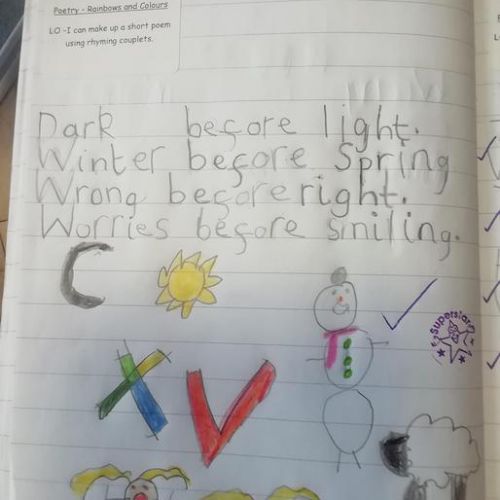 Poetry - Rainbows and Colours
LO -I can make up a short poem
using rhyming couplets.
Dark before light.
Winter before Spring
Wrong before right.
Worries before smiling.
Superstar